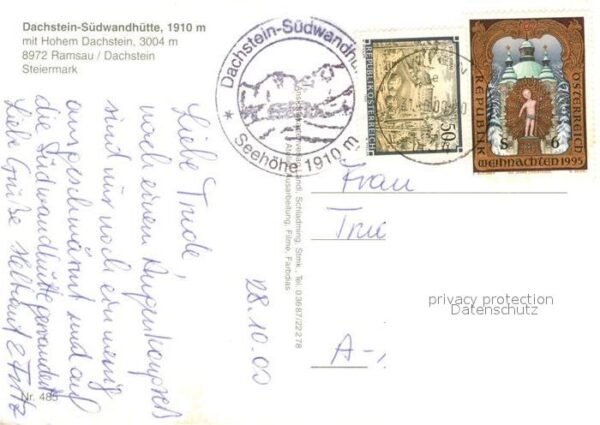 Dachstein-Südwandhütte, 1910 m
mit Hohem Dachstein, 3004 m
8972 Ramsau / Dachstein
Steiermark
Dachstein-Südwandhü
Seehöhe 1910 m
REPUBLIK ÖSTERREICH
50
REPUBLIK
ÖSTERREICH
S 6
WEIHNACHTEN 1995
Liebe Trude,
noch einem Augenkongreß
sind wir noch ein wenig
ausgeschwärmt und auf
die Südwandhütte gewandert
Liebe Grüße
28.10.00
Schladming, Stmk., Tel. 03687/22278
Filme, Farbdias
Frau
Tru
A-
privacy protection
Datenschutz
Nr. 485